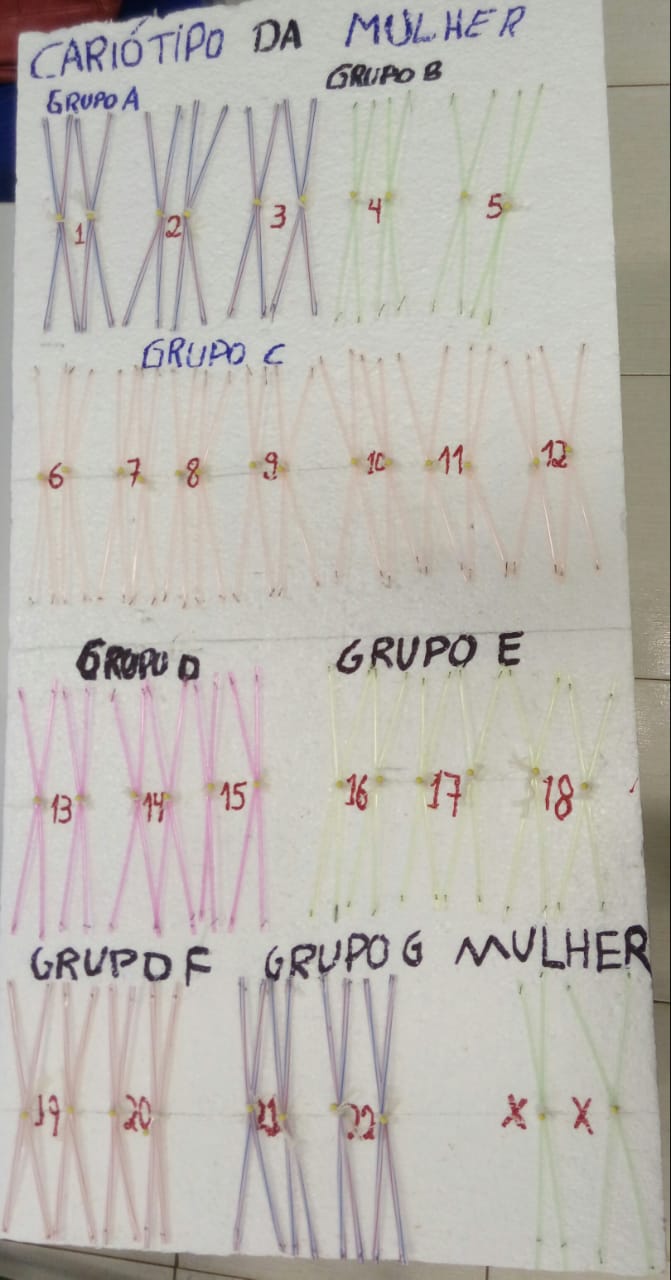 CARIÓTIPO DA MULHER
GRUPO A
GRUPO B
1 2 3 4 5
GRUPO C
6 7 8 9 10 11 12
GRUPO D
GRUPO E
13 14 15 16 17 18
GRUPO F
GRUPO G
MULHER
19 20 21 22 X X